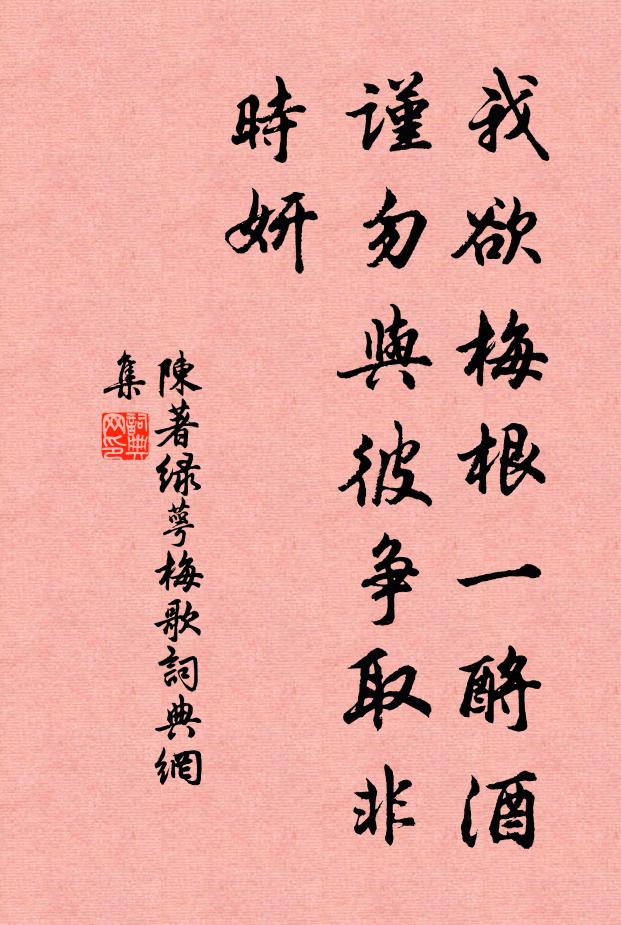 我欲梅根一酹酒
謹勿與彼争取非
時妍
陳著緑萼梅歌詞典網
集
詞典
网印